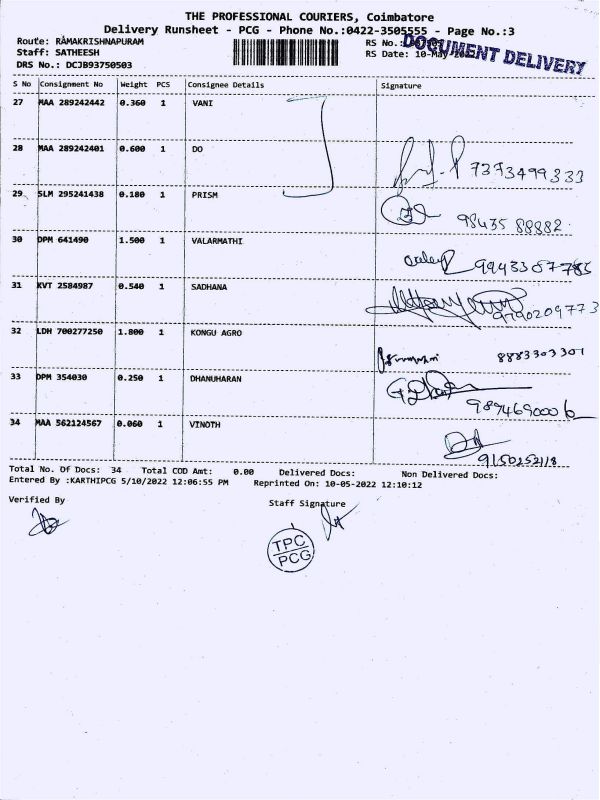 THE PROFESSIONAL COURIERS, Coimbatore
Delivery Runsheet - PCG - Phone No.:0422-3505555 - Page No.:3
Route: RAMAKRISHNAPURAM RS No.:
DOCUMENT DELIVERY
Staff: SATHEESH RS Date: 10-May-2022
DRS No.: DCJB93750503
S No Consignment No Weight PCS Consignee Details Signature
27 MAA 289242442 0.360 1 VANI
28 MAA 289242401 0.600 1 DO
7373499333
29 SLM 295241438 0.180 1 PRISM
98435 88882
30 DPM 641490 1.500 1 VALARMATHI
31 KVT 2584987 0.540 1 SADHANA
9790209773
32 LDH 700277250 1.800 1 KONGU AGRO
8883303301
33 DPM 354030 0.250 1 DHANUHARAN
9894690006
34 MAA 562124567 0.060 1 VINOTH
9150252118
Total No. Of Docs: 34 Total COD Amt: 0.00 Delivered Docs: Non Delivered Docs:
Entered By :KARTHIPCG 5/10/2022 12:06:55 PM Reprinted On: 10-05-2022 12:10:12
Verified By Staff Signature
TPC
PCG